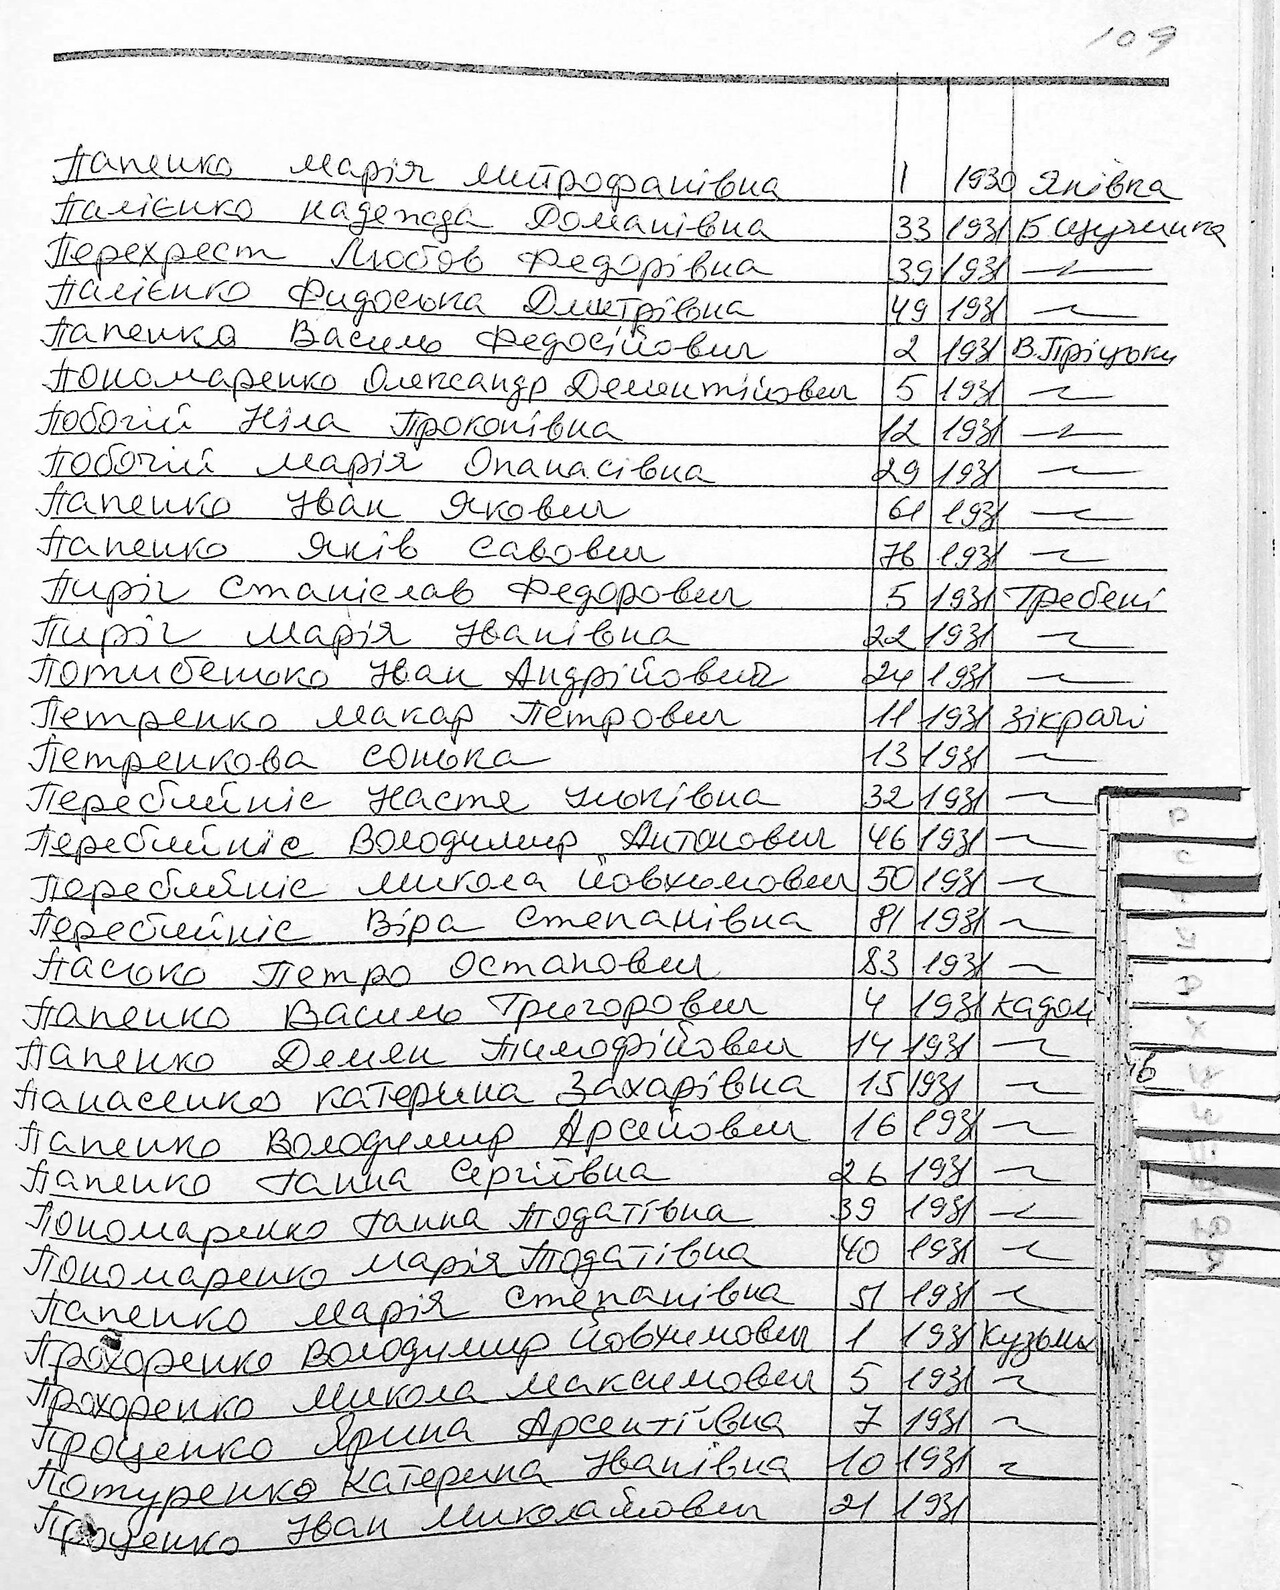 109
Папенко Марія Митрофанівна 1 1930 Янівка
Палієнко Надежда Романівна 33 1931 Б Щучинка
Перехрест Любов Федорівна 39 1931 —〃—
Палієнко Фидоська Дмитрівна 49 1931 —〃—
Папенко Василь Федосійович 2 1931 В.Пріцьки
Пономаренко Олександр Дементійович 5 1931 —〃—
Побочій Ніла Прокопівна 12 1931 —〃—
Побочій Марія Опанасівна 29 1931 —〃—
Папенко Іван Якович 61 1931 —〃—
Папенко Яків Савович 76 1931 —〃—
Пиріг Станіслав Федорович 5 1931 Гребені
Пиріг Марія Іванівна 22 1931 —〃—
Потибенько Іван Андрійович 24 1931 —〃—
Петренко Макар Петрович 11 1931 Зікрачі
Петренкова Сонька 13 1931 —〃—
Перебийніс Настя Юхківна 32 1931 —〃—
Перебийніс Володимир Антонович 46 1931 —〃—
Перебийніс Микола Йовхимович 50 1931 —〃—
Перебийніс Віра Степанівна 81 1931 —〃—
Пасько Петро Остапович 83 1931 —〃—
Папенко Василь Григорович 4 1931 Кадом
Папенко Демян Тимофійович 14 1931 —〃—
Панасенко Катерина Захарівна 15 1931 —〃—
Папенко Володимир Арсейович 16 1931 —〃—
Папенко Ганна Сергіївна 26 1931 —〃—
Пономаренко Ганна Податівна 39 1931 —〃—
Пономаренко Марія Податівна 40 1931 —〃—
Папенко Марія Степанівна 51 1931 —〃—
Прохоренко Володимир Йовхимович 1 1931 Кузьми
Прохоренко Микола Максимович 5 1931 —〃—
Проценко Ярина Арсентіївна 7 1931 —〃—
Потуренко Катерина Іванівна 10 1931 —〃—
Проценко Іван Миколайович 21 1931